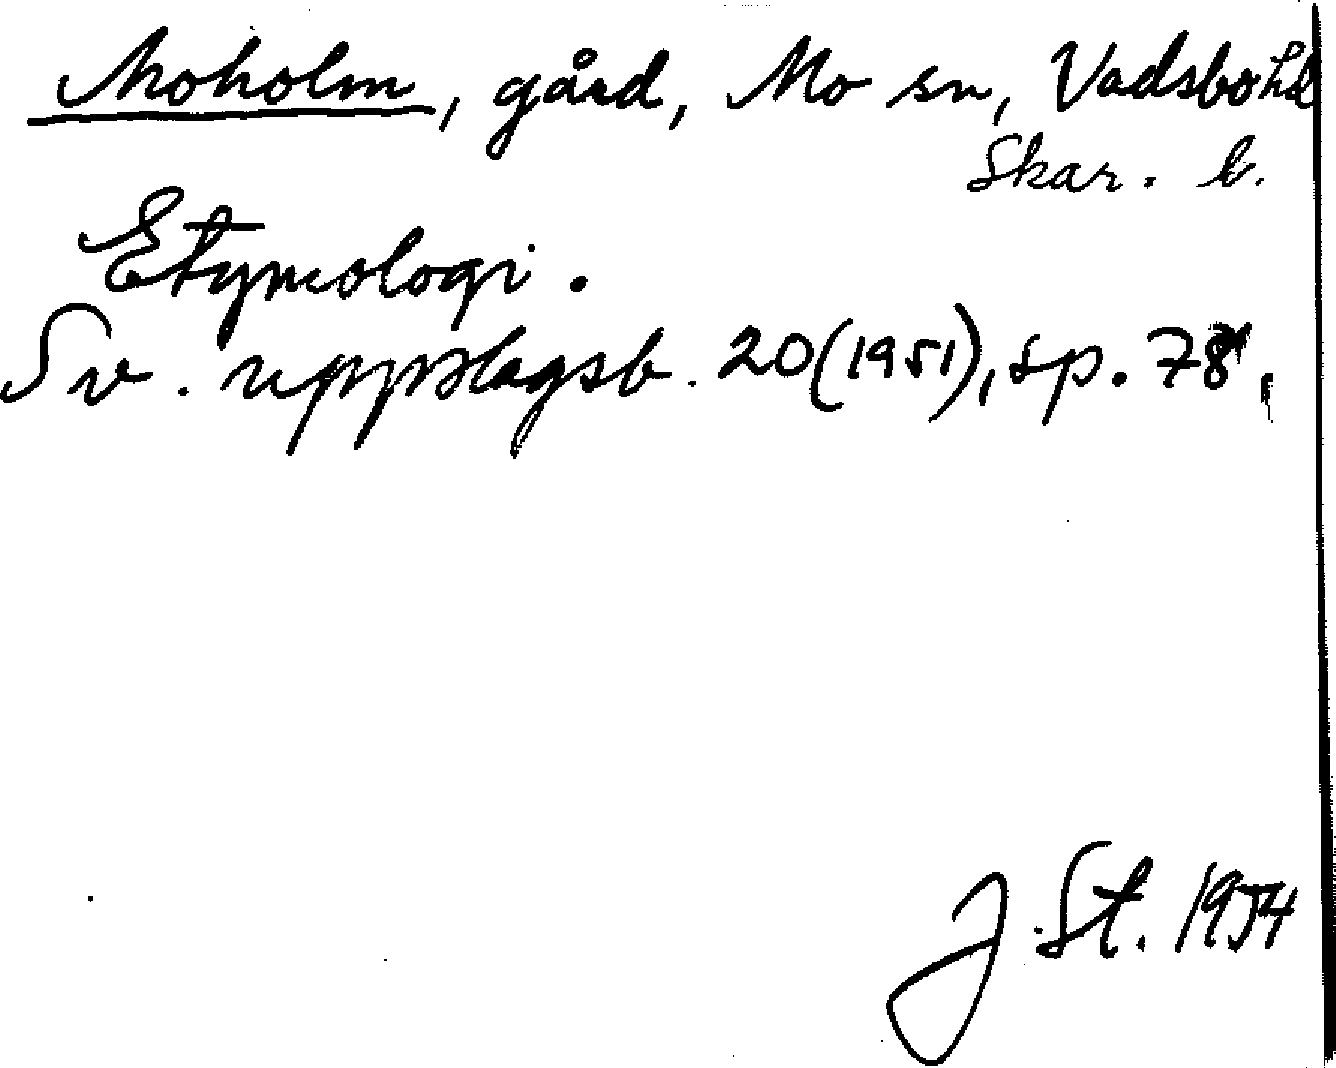 Moholm, gård, Mo sn, Vadsbo hd
Skar. b.
Etymologi.
Sv. uppslagsb. 20 (1951), sp. 78.
J. St. 1954